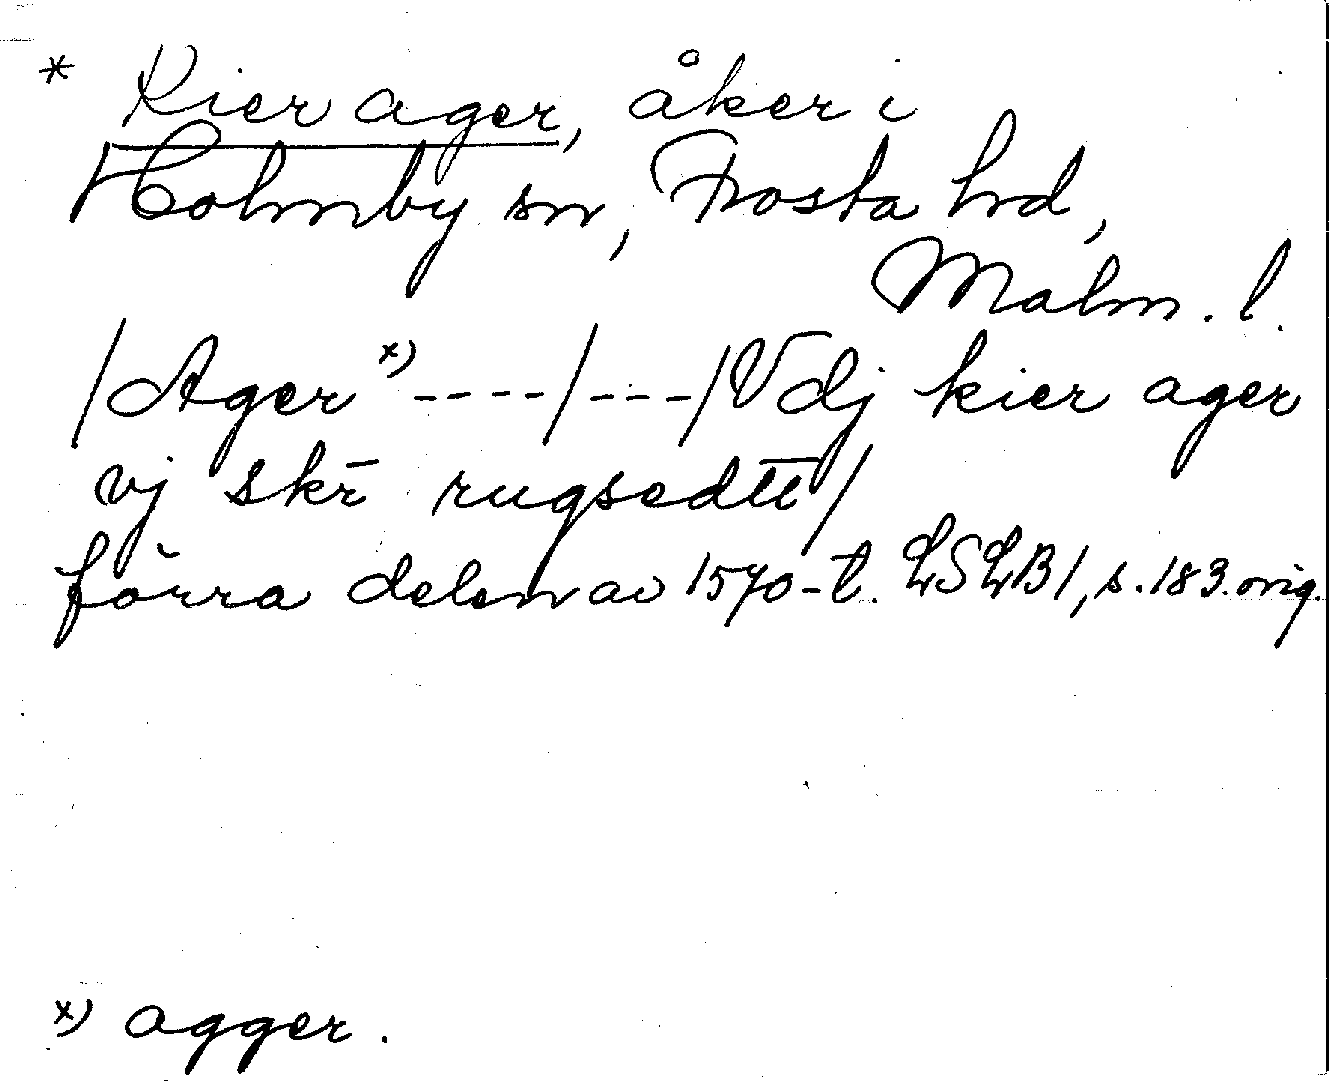 * Kier ager, åker i
Holmby sn, Frosta hd,
Malm. l.
/Ager x) ----/---/Vdj kier ager
vj skr̄ rugsedt̄t̄/
förra delen av 1570-t. LSLB1, s. 183. orig.
x) agger.